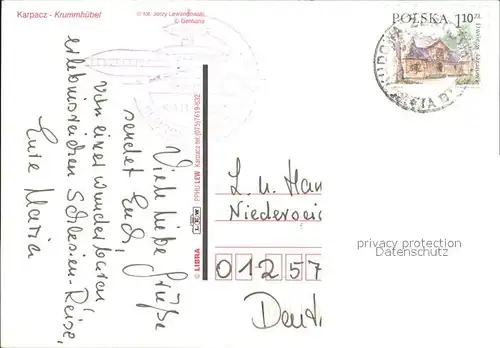 Karpacz - Krummhübel
© fot. Jerzy Lewandowski,
POLSKA 1,10 ZŁ
Viele liebe Grüße
sendet Euch,
von einer wunderbaren
erlebnisreichen Schlesien-Reise,
Eure Maria
© LIBRA
LEW
PPHU LEW Karpacz tel.(075)7619-832
L. u. Han
Niedersei
01257
Deut
privacy protection
Datenschutz